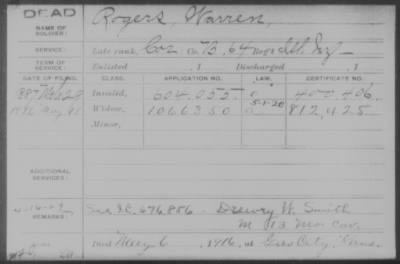 DEAD
NAME OF SOLDIER: Rogers, Warren,
SERVICE: Late rank, Cor Co. B, 64 Reg't Ill. Inf
TERM OF SERVICE: Enlisted , 1 Discharged , 1
DATE OF FILING. CLASS. APPLICATION NO. LAW. CERTIFICATE NO.
1887 Invalid, 604.055 400.406
Aug Widow, 1066350 812,425
5-1-20
Minor,
ADDITIONAL SERVICES:
REMARKS: See I.C. 676,886 - Drewry W. Smith
M 13 Mo Cav.
Died May 6, 1916, at City, Kans.